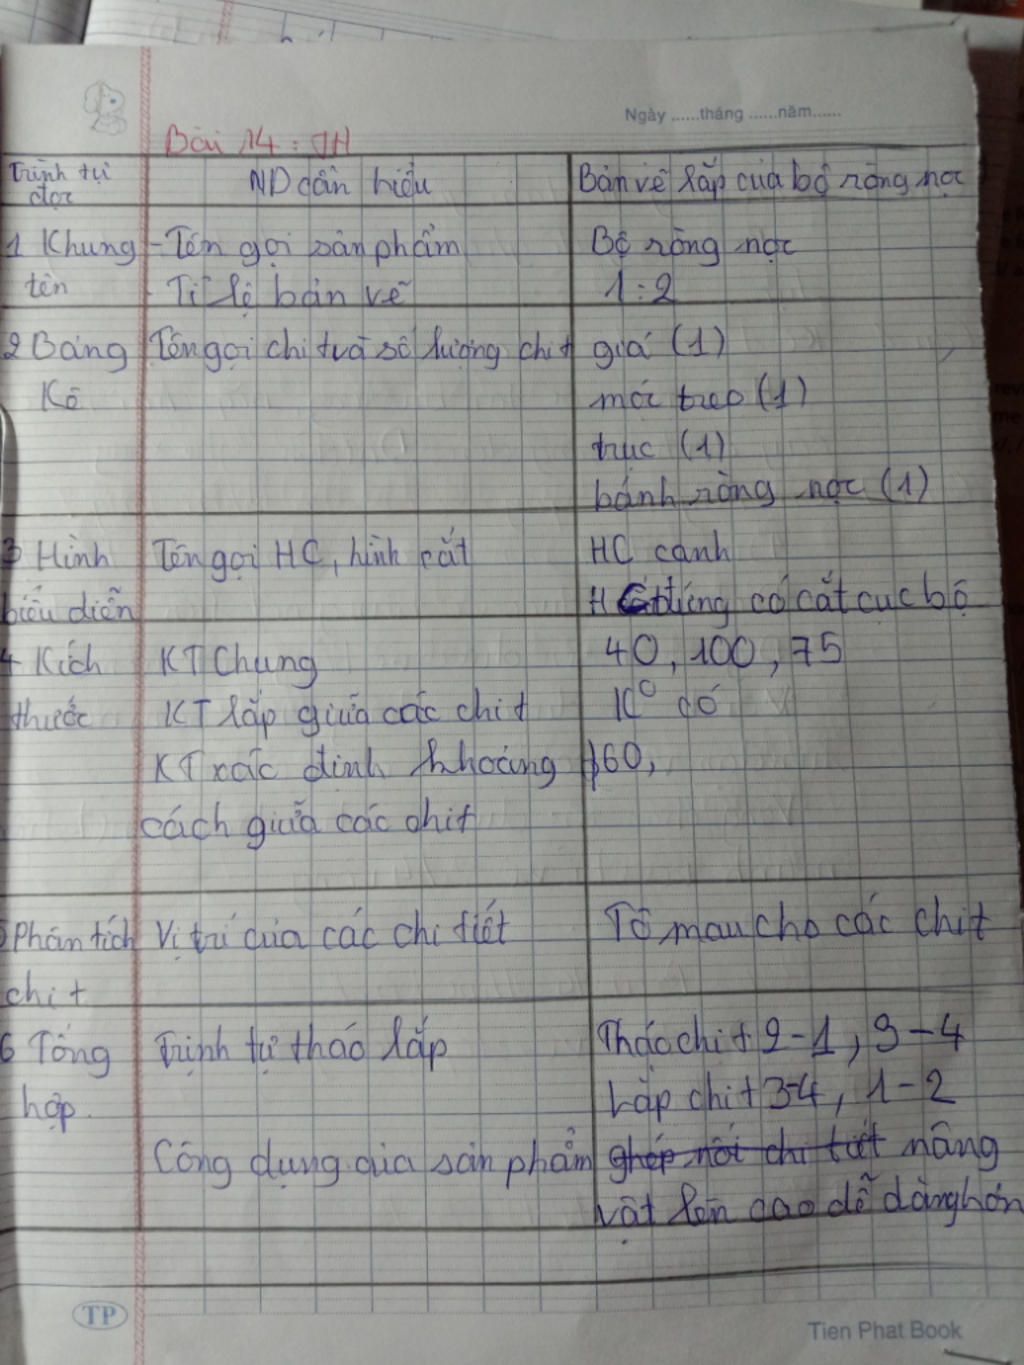 Ngày ......tháng ......năm......
Bài 14: TH
Trình tự đọc | ND cần hiểu | Bản vẽ lắp của bộ ròng rọc
1 Khung tên | - Tên gọi sản phẩm | Bộ ròng rọc
- Tỉ lệ bản vẽ | 1:2
2 Bảng Kê | Tên gọi chi t và số lượng chi t | giá (1)
móc treo (1)
trục (1)
bánh ròng rọc (1)
3 Hình biểu diễn | Tên gọi HC, hình cắt | HC cạnh
H đứng có cắt cục bộ
4 Kích thước | KT Chung | 40, 100, 75
KT lắp giữa các chi t | K° có
KT xác định khoảng | 60,
cách giữa các chi t
5 Phân tích chi t | Vị trí của các chi tiết | Tô mau cho các chi t
6 Tổng hợp. | Trình tự tháo lắp | Tháo chi t 2-1, 3-4
Lắp chi t 3-4, 1-2
Công dụng của sản phẩm | ghép nối chi tiết nâng
vật lên cao dễ dàng hơn
TP
Tien Phat Book